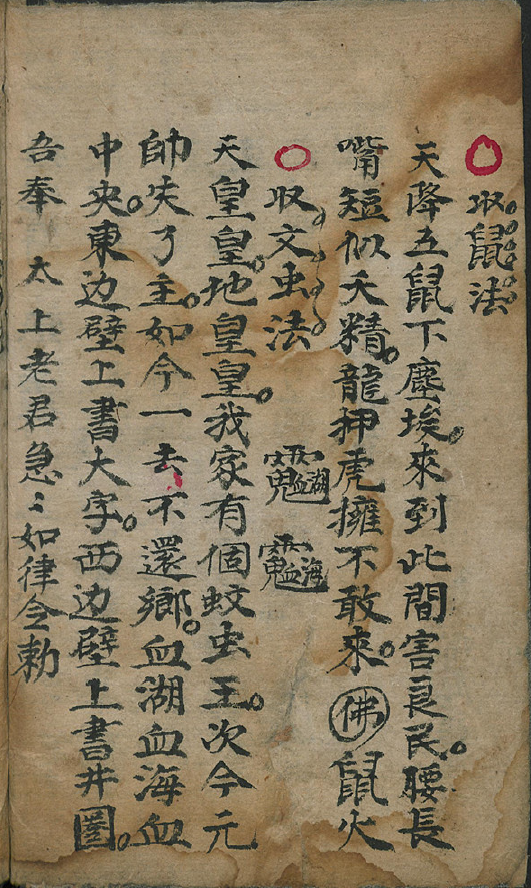 收鼠法
天降五鼠下塵埃。來到此間害良民。腰長
嘴短似夭精。龍押虎擁不敢來。佛鼠火
收文虫法
天皇皇。地皇皇。我家有個蚊虫王。次今元
帥失了主。如今一去不還鄉。血湖血海血
中央。東边壁上書大字。西边壁上書井圏。
吾奉 太上老君急〻如律令勅